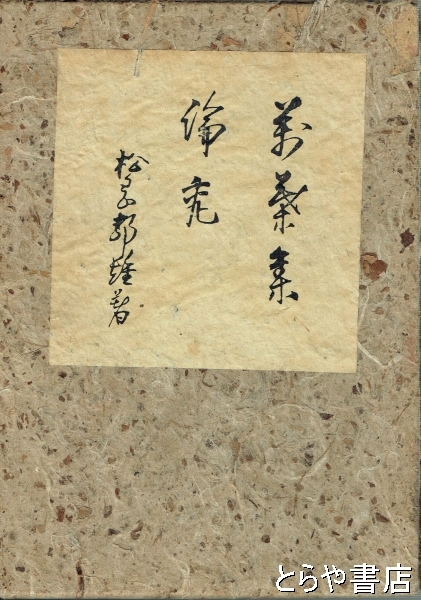 萬葉集
論究
松尾郁雄著
とらや書店